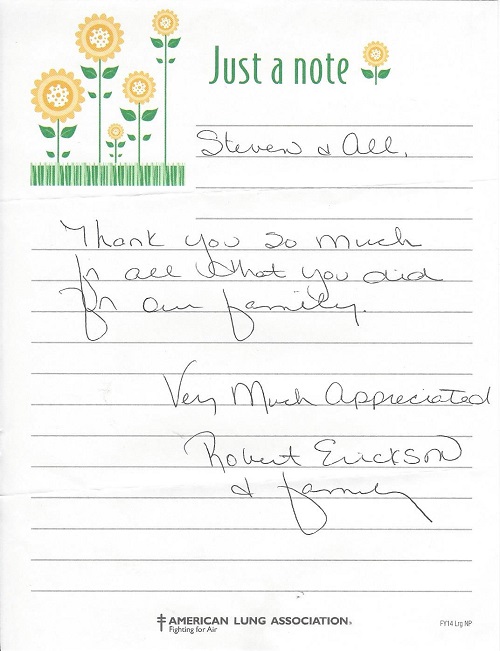 Just a note
Steven & All,
Thank you so much
for all that you did
for our family.
Very Much Appreciated
Robert Erickson
& family
AMERICAN LUNG ASSOCIATION®
Fighting for Air
FY14 Lrg NP